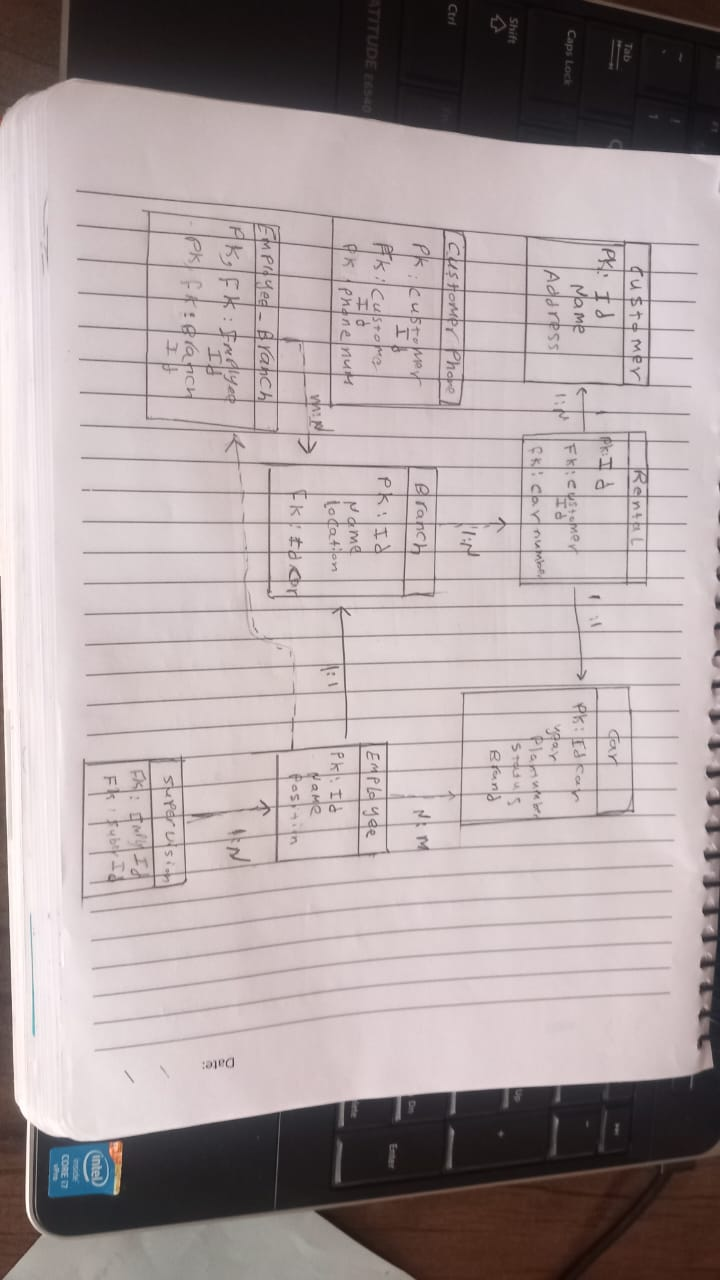 Customer
PK: Id
Name
Address
1
1:N
Rental
PK: Id
FK: customer
Id
FK: car number
1:1
Car
PK: Id car
year
Plan number
status
Brand
Customer Phone
PK: customer
Id
PK: phone num
1:N
Branch
PK: Id
Name
location
FK: Id car
1:1
N:M
Employee
PK: Id
Name
Position
Employee-Branch
PK, FK: Emplyee
Id
PK, FK: Branch
Id
M:N
1:N
supervision
FK: Emp Id
FK: Supr Id
Date:
Tab
Caps Lock
Shift
Ctrl
LATITUDE E6540
Enter
intel
inside
CORE i7
vPro